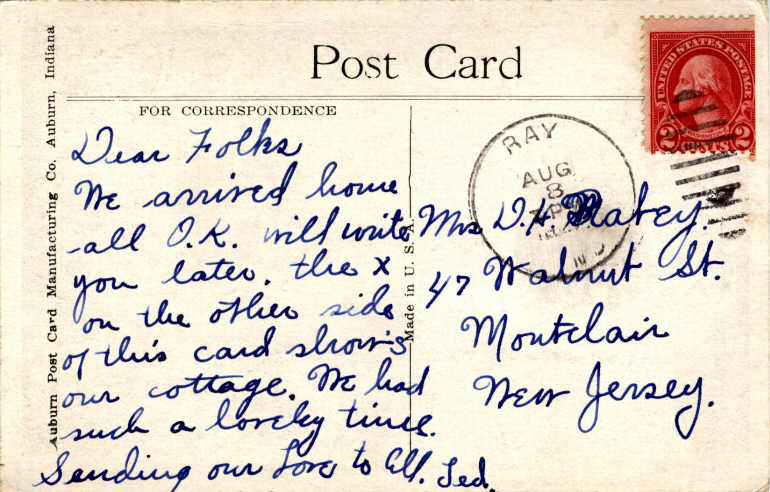 Auburn Post Card Manufacturing Co. Auburn, Indiana
Post Card
FOR CORRESPONDENCE
Dear Folks
We arrived home
all O.K. will write
you later. the x
on the other side
of this card shows
our cottage. We had
such a lovely time.
Sending our Love to all. Ted.
Made in U. S. A.
UNITED STATES POSTAGE
2 2
RAY
AUG
8
IND
Mrs D. H.
47 Walnut St.
Montclair
New Jersey.